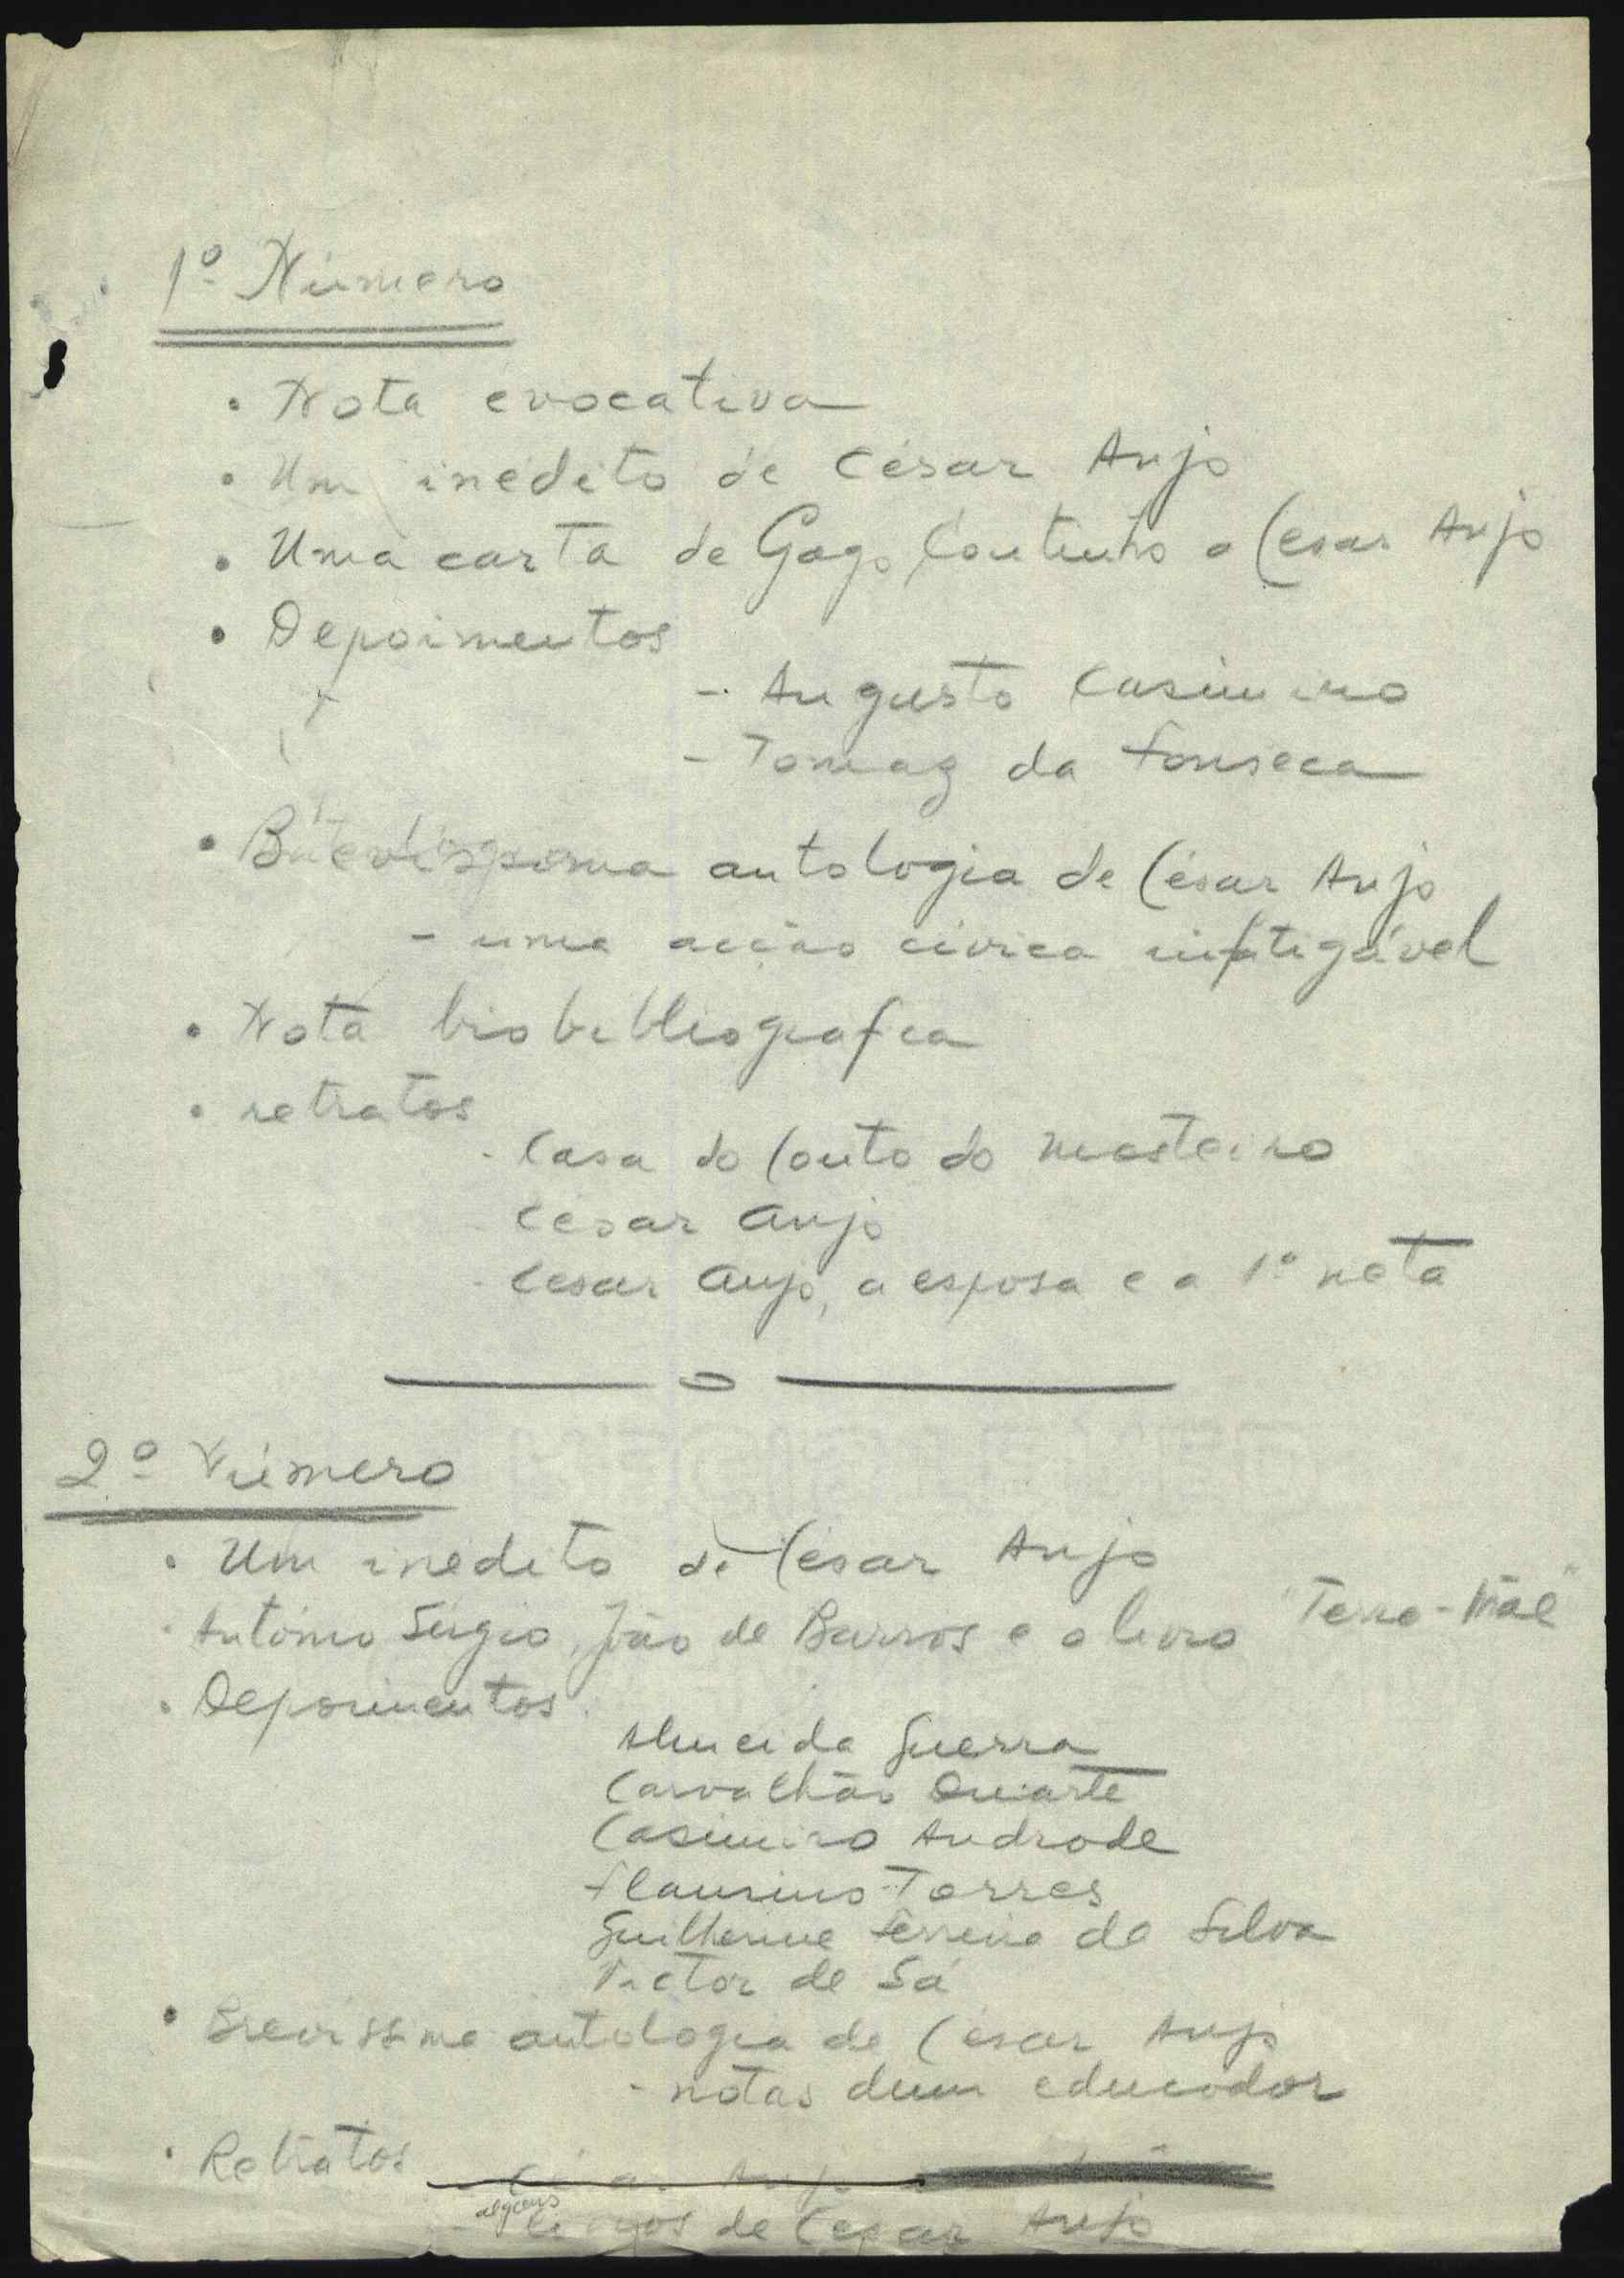 1º Número
• Nota evocativa
• Um inédito de César Anjo
• Uma carta de Gago Coutinho a César Anjo
• Depoimentos
- Augusto Casimiro
- Tomaz da Fonseca
• Brevissima antologia de César Anjo
- uma acção cívica infatigável
• Nota biobibliografica
• retratos
- Casa do Couto do Mosteiro
- César Anjo
- César Anjo, a esposa e a 1ª neta
2º Número
• Um inédito de César Anjo
• António Sérgio, João de Barros e o livro "Terra-Mãe"
• Depoimentos
Almeida Guerra
Carvalhão Duarte
Casimiro Andrade
Flausino Torres
Guilherme Ferreira da Silva
Victor de Sá
• Brevissima antologia de César Anjo
- notas dum educador
• Retratos
alguns
- livros de César Anjo